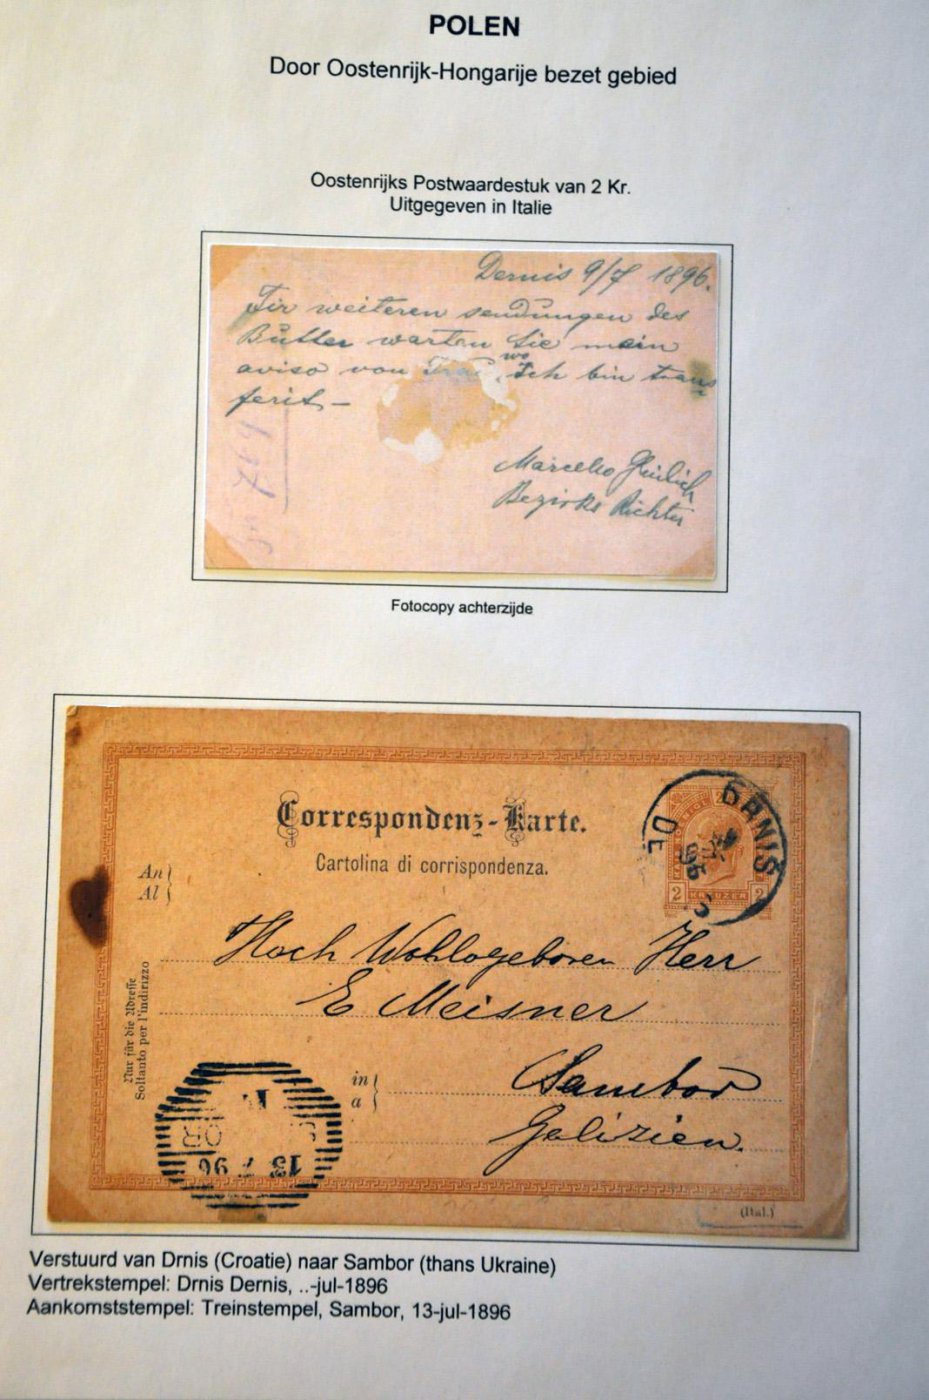 POLEN
Door Oostenrijk-Hongarije bezet gebied
Oostenrijks Postwaardestuk van 2 Kr.
Uitgegeven in Italie
Dernis 9/7 1896.
Für weiteren sendungen des
Butter warten Sie mein
aviso von wo Ich bin trans
ferit —
Marcello
Bezirks Richter
Fotocopy achterzijde
Correspondenz-Karte.
Cartolina di corrispondenza.
DRNIS
DE
2 KREUZER 2
An
Al
Hoch Wohlogeboren Herr
E Meisner
Nur für die Adresse
Soltanto per l'indirizzo
in
a
Sambor
Galizien.
13 7 96
(Ital.)
Verstuurd van Drnis (Croatie) naar Sambor (thans Ukraine)
Vertrekstempel: Drnis Dernis, ..-jul-1896
Aankomststempel: Treinstempel, Sambor, 13-jul-1896